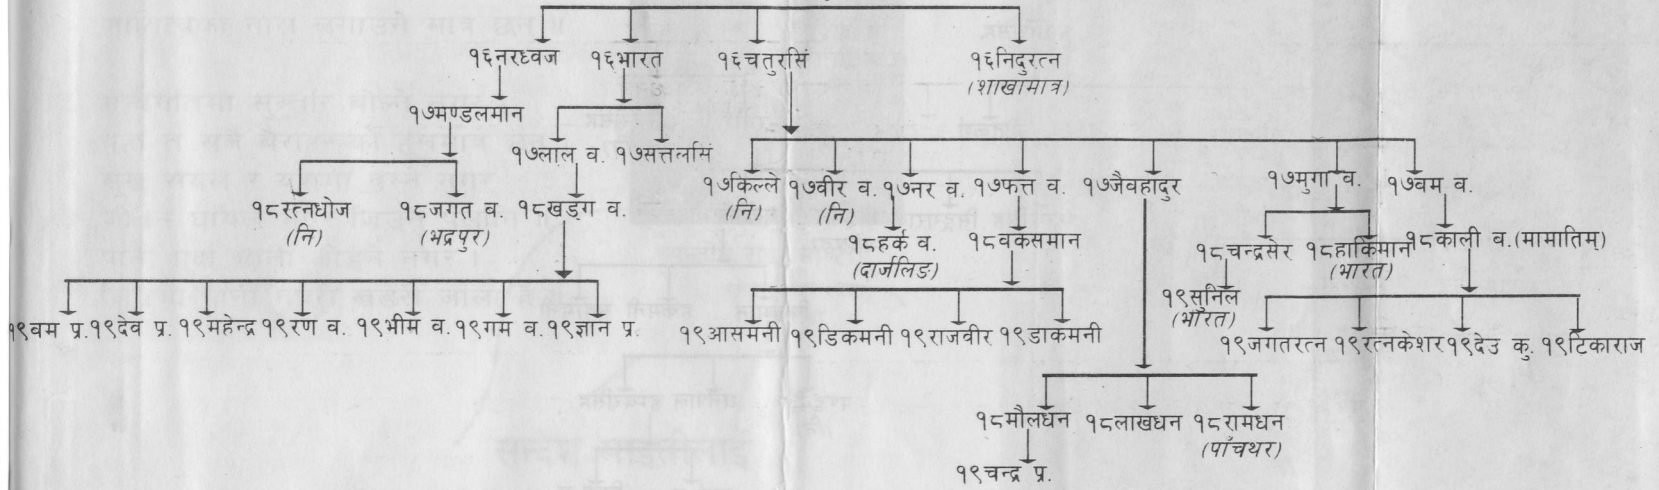 १६नरध्वज १६भारत १६चतुरसिं १६निदुरत्न
(शाखामात्र)
१७मण्डलमान
१७लाल व. १७सत्तर्लासं
१७किल्ले १७वीर व. १७नर व. १७फत्त व. १७जैवहादुर १७मुगा व. १७वम व.
(नि) (नि)
१८रत्नधोज १८जगत व. १८खड्ग व.
(नि) (भद्रपुर)
१८हर्क व. १८वकसमान १८चन्द्रसेर १८हाकिमान १८काली व.(मामातिम्)
(दार्जलिङ) (भारत)
१९सुनिल
(भारत)
१९वम प्र. १९देव प्र. १९महेन्द्र १९रण व. १९भीम व. १९गम व. १९ज्ञान प्र. १९आसमनी १९डिकमनी १९राजवीर १९डाकमनी
१९जगतरत्न १९रत्नकेशर १९देउ कु. १९टिकाराज
१८मौलधन १८लाखधन १८रामधन
(पाँचथर)
१९चन्द्र प्र.